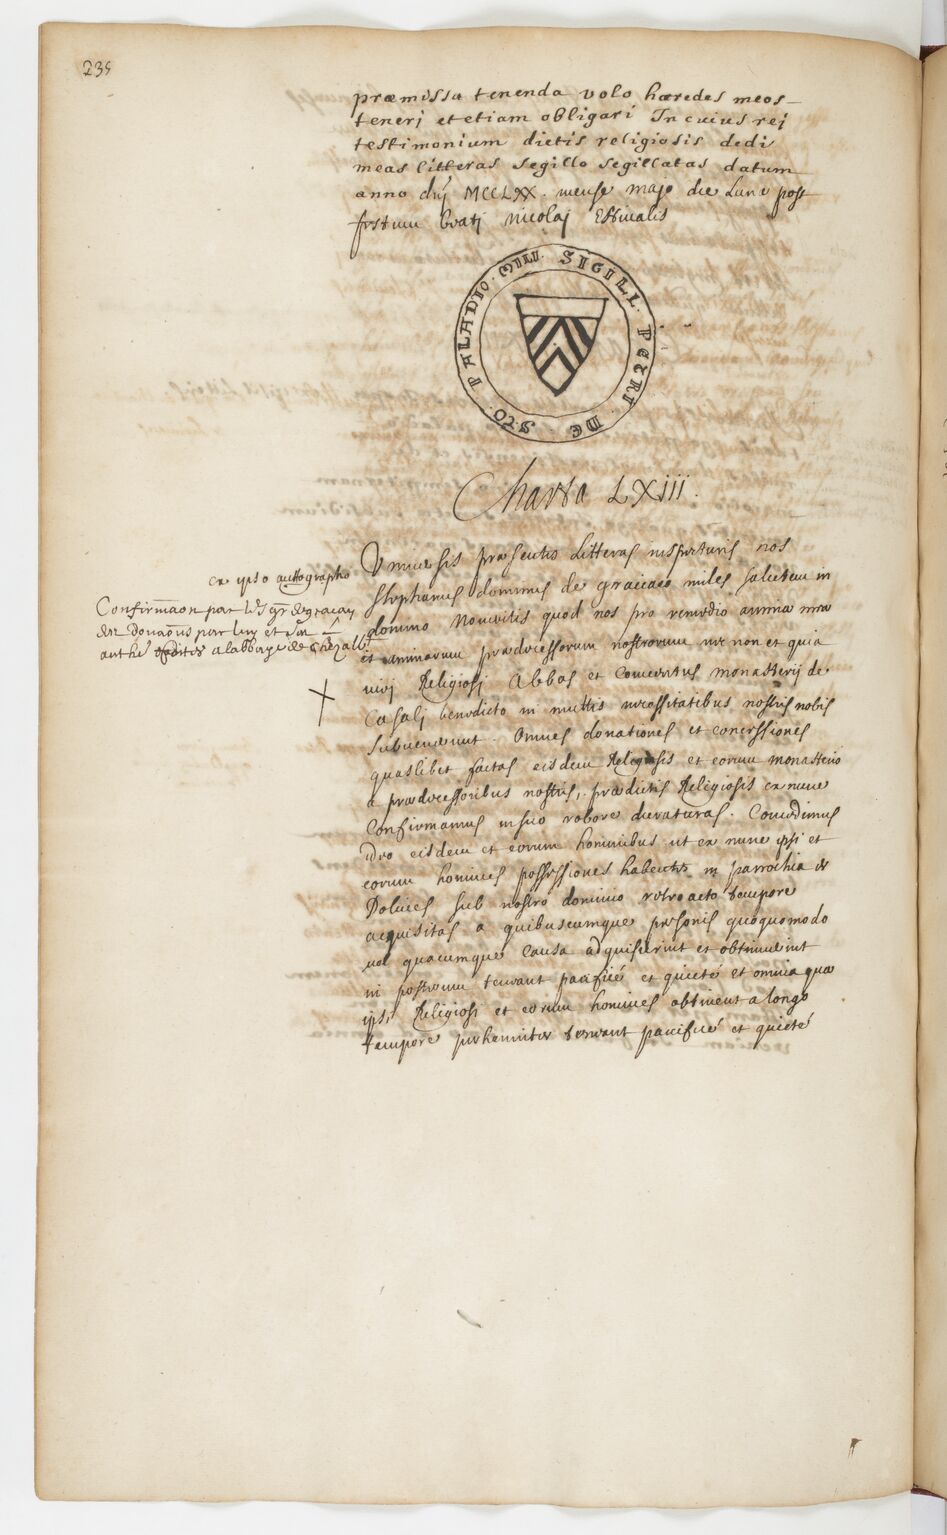 235
præmissa tenenda volo hæredes meos
tenerj et etiam obligari In cuius rej
testimonium dictis religiosis dedi
meas litteras segillo segillatas datum
anno dnj MCCLXX. mense majo die Lune post
festum beatj Nicolaj Estivalis
SIGILL. PETRI. DE. STO. PALADIO. MILI.
Charta LXIII.
ex ipso authographo
Confirmaon par
de Donaons par luy et
a labbaye de Chezalb
Universis præsentes Litteras inspecturis nos
Stephanus dominus de graciaco miles salutem in
domino Noveritis quod nos pro remedio animæ meæ
et animarum prædecessorum nostrorum nec non et quia
virj Religiosj Abbas et Conventus monasterij de
Casalj benedicto in multis necessitatibus nostris nobis
subvenerunt. Omnes donationes et concessiones
quaslibet factas eisdem Religiosis et eorum monasterio
a prædecessoribus nostris, prædictis Religiosis ex nunc
Confirmamus in suo robore duraturas. Concedimus
ideo eisdem et eorum hominibus ut ex nunc ipsi et
eorum homines possessiones habentes in parrochia de
Dolmes sub nostro dominio retroacto tempore
acquisitas a quibuscumque personis quoquomodo
vel quacumque Causa adquisierint et obtinuerint
in posterum teneant pacificé et quieté et omnia quæ
ipsi Religiosi et eorum homines obtinent a longo
tempore perhenniter teneant pacificé et quieté